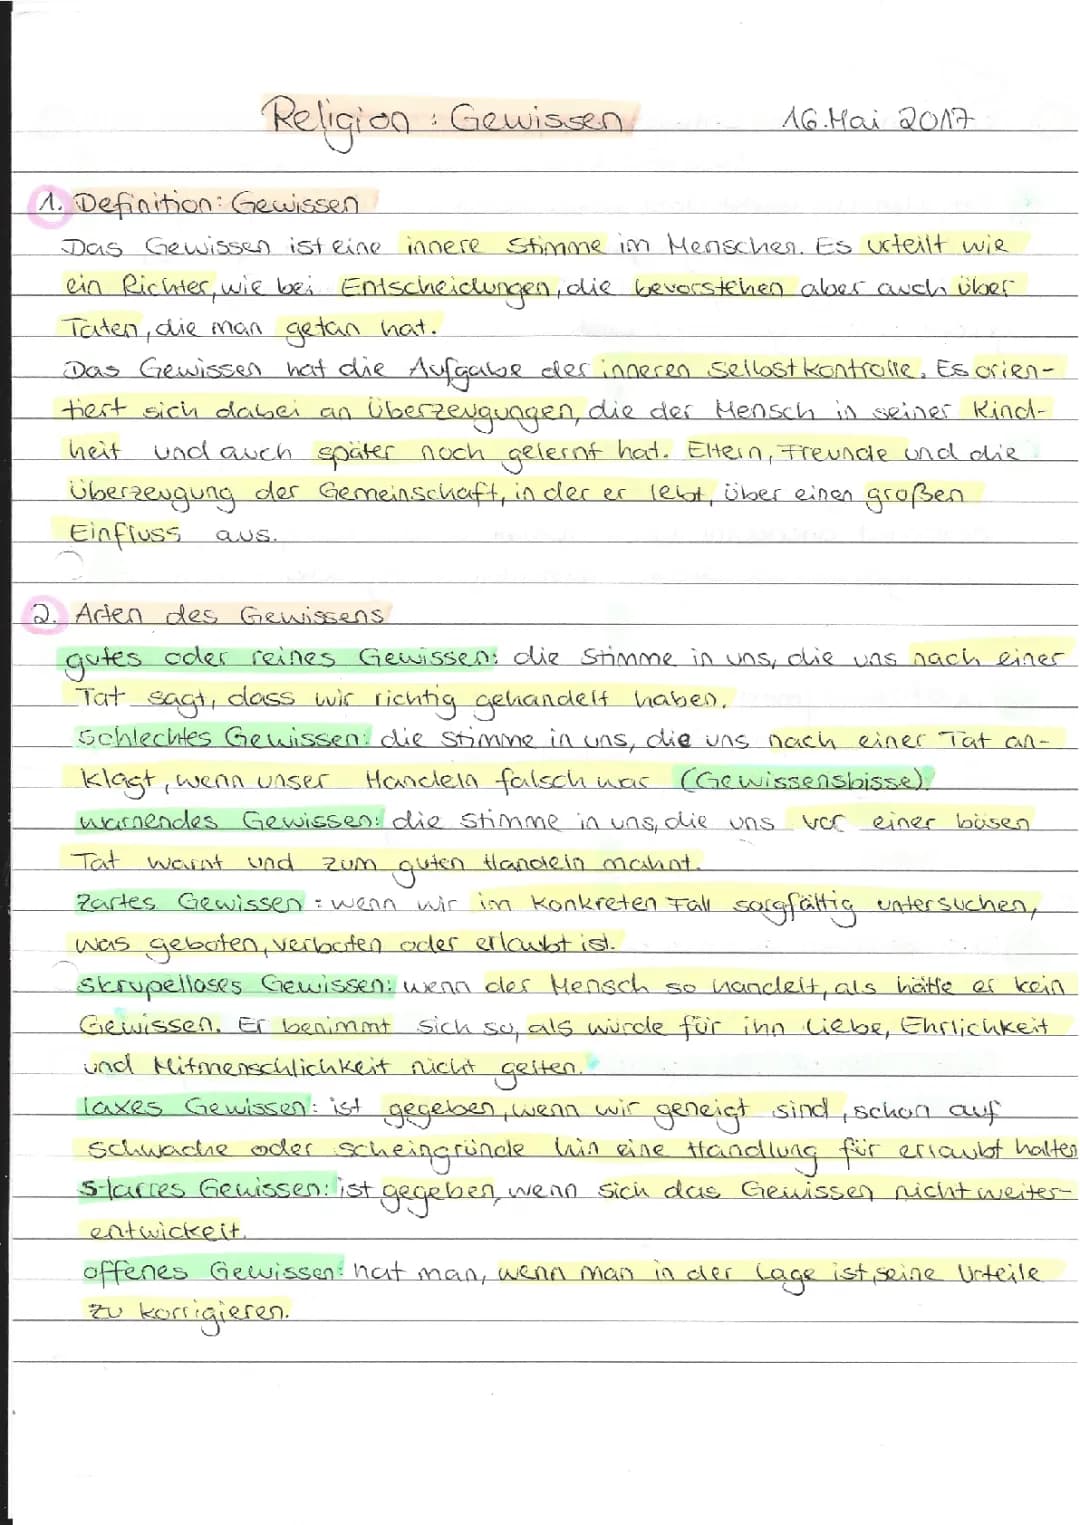 Religion: Gewissen 16. Mai 2017
1. Definition: Gewissen
Das Gewissen ist eine innere Stimme im Menschen. Es urteilt wie
ein Richter, wie bei Entscheidungen, die bevorstehen aber auch über
Taten, die man getan hat.
Das Gewissen hat die Aufgabe der inneren Selbstkontrolle. Es orien-
tiert sich dabei an Überzeugungen, die der Mensch in seiner Kind-
heit und auch später noch gelernt hat. Eltern, Freunde und die
Überzeugung der Gemeinschaft, in der er lebt, über einen großen
Einfluss aus.
2. Arten des Gewissens
gutes oder reines Gewissen: die Stimme in uns, die uns nach einer
Tat sagt, dass wir richtig gehandelt haben.
Schlechtes Gewissen: die Stimme in uns, die uns nach einer Tat an-
klagt, wenn unser Handeln falsch war (Gewissensbisse)
warnendes Gewissen: die Stimme in uns, die uns vor einer bösen
Tat warnt und zum guten Handeln mahnt.
Zartes Gewissen: wenn wir im konkreten Fall sorgfältig untersuchen,
was geboten, verboten oder erlaubt ist.
skrupelloses Gewissen: wenn der Mensch so handelt, als hätte er kein
Gewissen. Er benimmt sich so, als würde für ihn Liebe, Ehrlichkeit
und Mitmenschlichkeit nicht gelten.
laxes Gewissen: ist gegeben, wenn wir geneigt sind, schon auf
schwache oder scheingründe hin eine Handlung für erlaubt halten
starres Gewissen: ist gegeben, wenn sich das Gewissen nicht weiter-
entwickelt.
offenes Gewissen: hat man, wenn man in der Lage ist, seine Urteile
zu korrigieren.